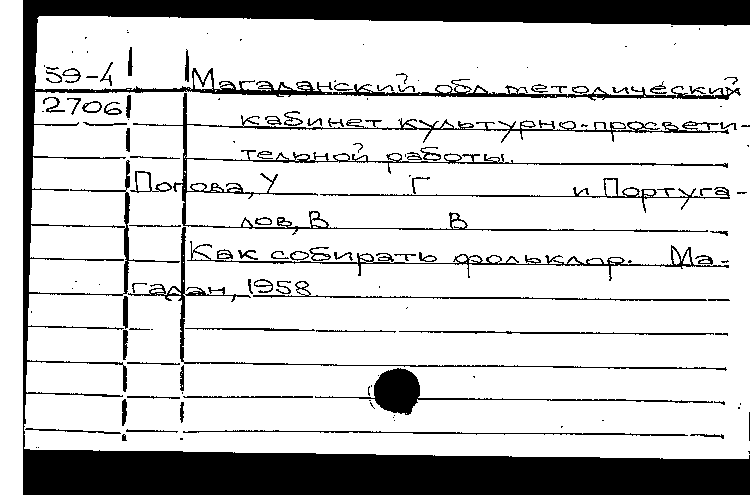 59-4 Магаданский обл. методический
2706 кабинет культурно-просвети-
тельной работы.
Попова, У Г и Португа-
лов, В В
Как собирать фольклор. Ма-
гадан, 1958